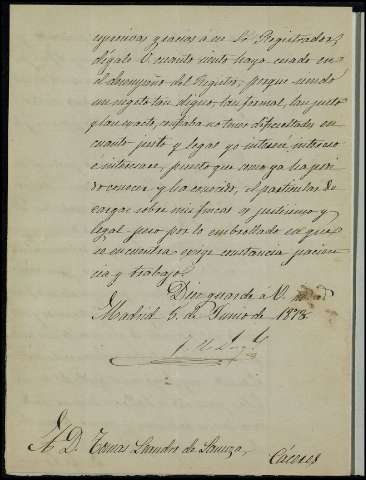 expresivas gracias a ese Sr. Registrador,
dígale V. cuanto siento haya cesado en
el desempeño del Registro, porque siendo
un sugeto tan digno, tan formal, tan justo
y tan exacto, contaba no tener dificultades en
cuanto justo y legal yo interesé, intereso
é interesare, puesto que como ya ha podi
do conocer y ha conocido, el particular de
cargas sobre mis fincas es justísimo y
legal pero por lo embrollado en que
se encuentra exige constancia pacien
cia y trabajo.
Dios guarde a V.
Madrid 5 de Junio de 1878.
S. D. Tomas Leandro de
Cáceres